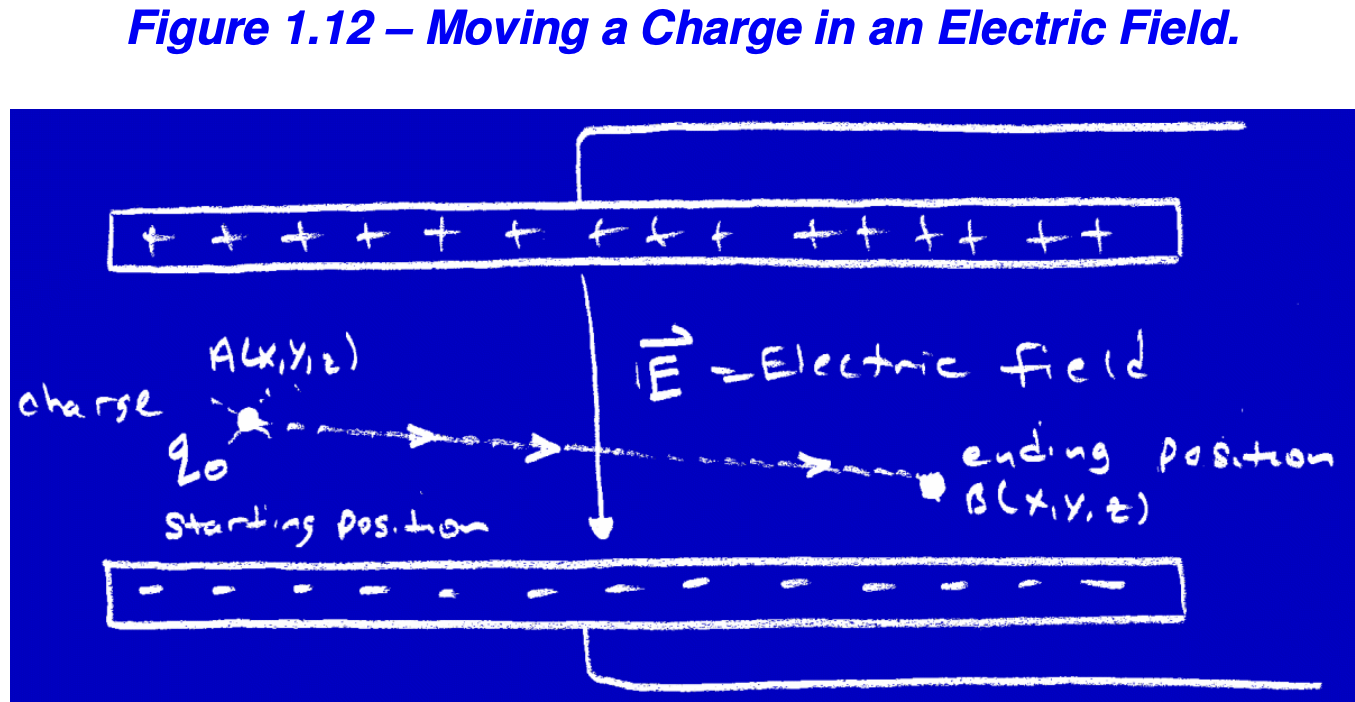 Figure 1.12 – Moving a Charge in an Electric Field.
+ + + + + + + + + + + + + + +
A(x,y,z)
charge
q₀
starting position
E⃗ = Electric field
ending position
B(x,y,z)
- - - - - - - - - - - - -